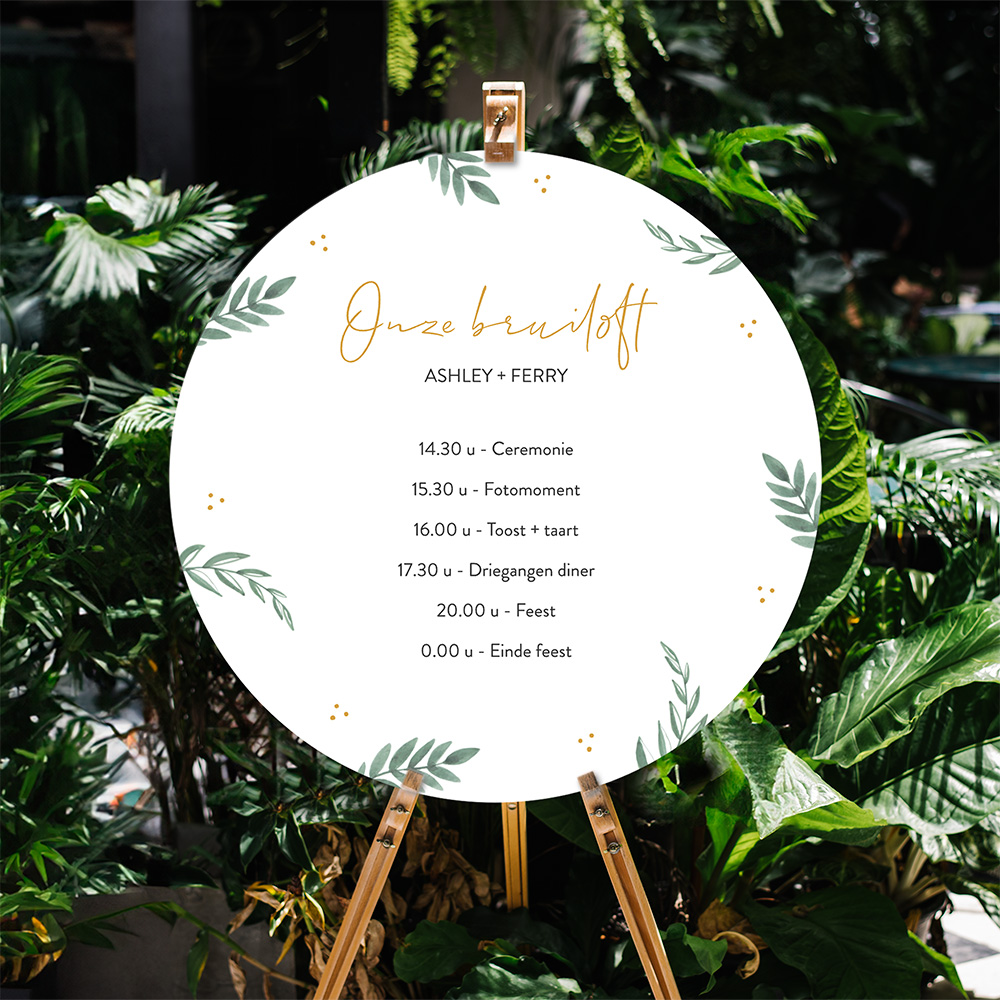 Onze bruiloft
ASHLEY + FERRY
14.30 u - Ceremonie
15.30 u - Fotomoment
16.00 u - Toost + taart
17.30 u - Driegangen diner
20.00 u - Feest
0.00 u - Einde feest